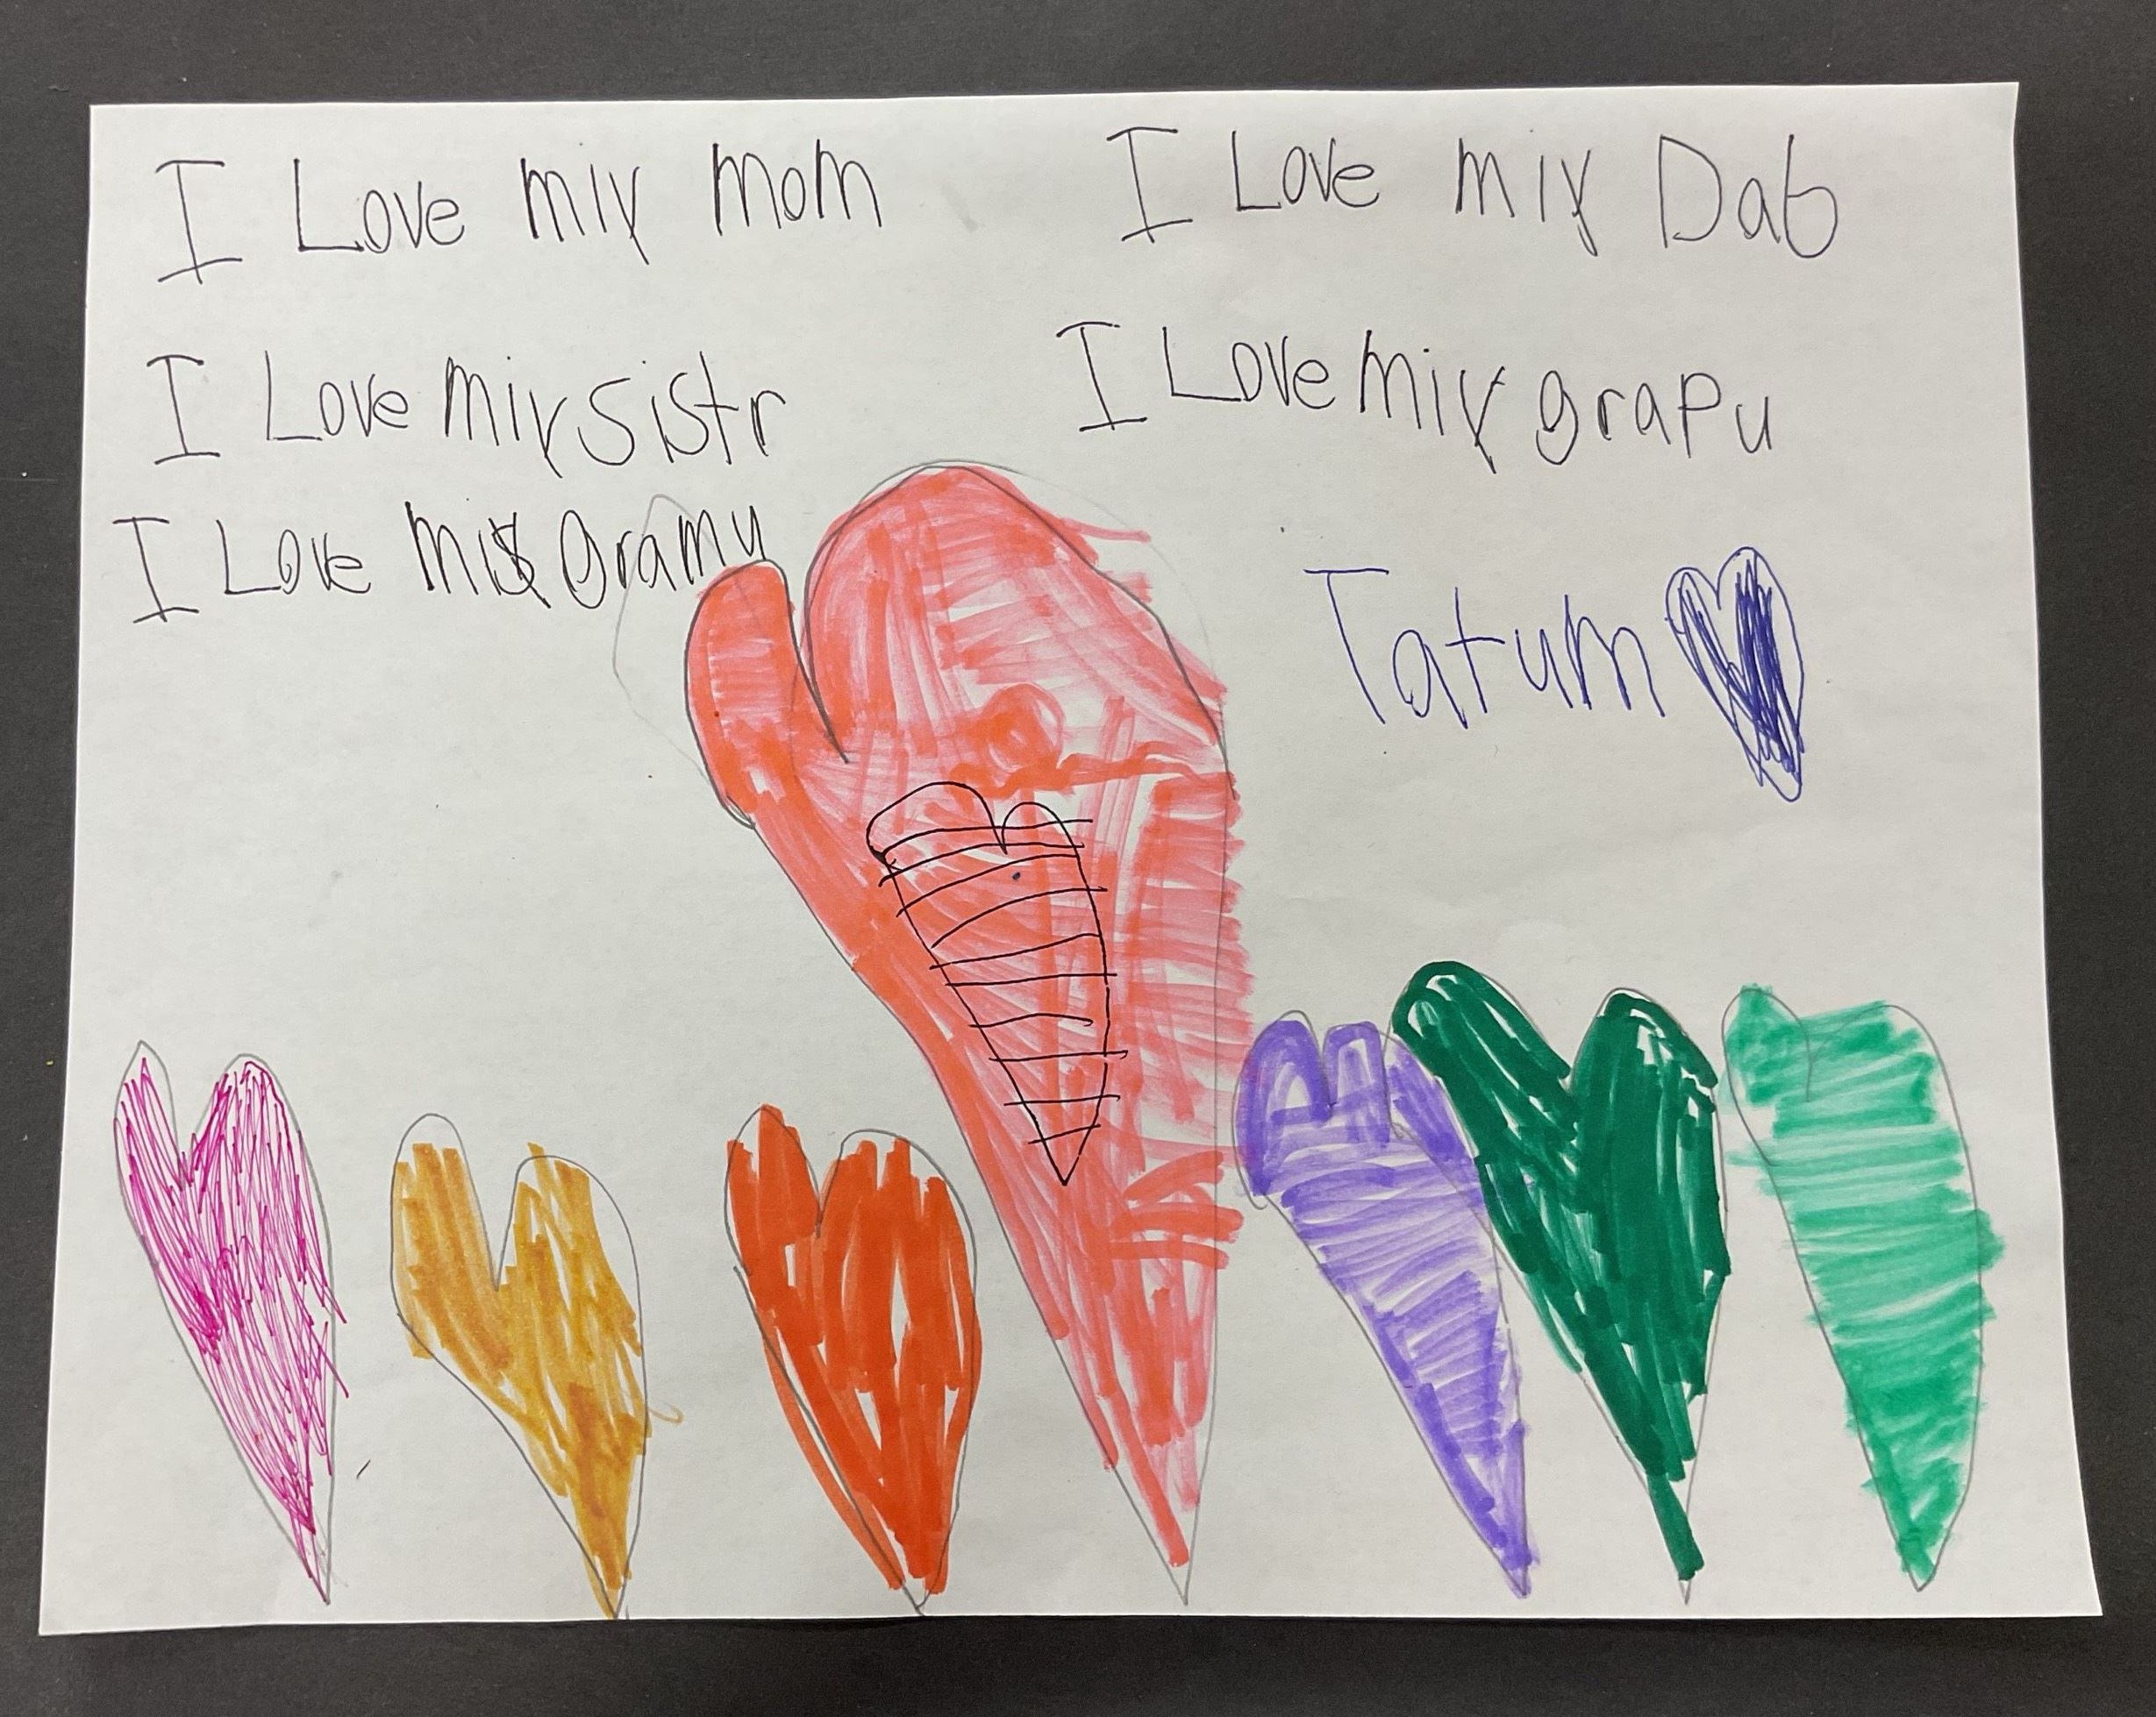 I Love miy mom
I Love miy Dab
I Love miy sistr
I Love miy grapu
I Love miy gramu
Tatum